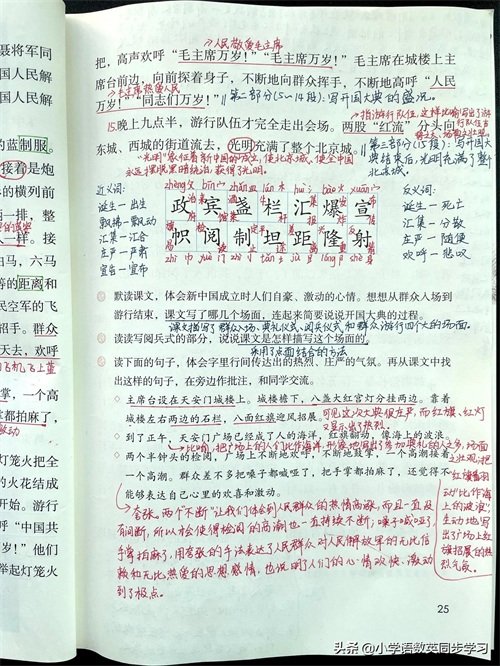 聂将军同
国人民解
国人民解
的蓝制服。
接着是炮
的横列前
一排，整
一样。接
白马，六马
的距离和
民空军的飞
招手。群众
天去，欢呼
掌，一个高
都拍麻了，
灯笼火把全
的火花结成
开始。游行
呼“中国共
万岁！”他们
举起灯笼火
人民敬爱毛主席
把，高声欢呼“毛主席万岁！”“毛主席万岁！”毛主席在城楼上主
席台前边，向前探着身子，不断地向群众挥手，不断地高呼“人民
毛主席热爱人民
万岁！”“同志们万岁！”
第二部分（5～14段）：写开国大典的盛况。
15.晚上九点半，游行队伍才完全走出会场。两股“红流”分头向
东城、西城的街道流去，光明充满了整个北京城。
第三部分（15段）：写开国大
典结束后，光明充满了整个
北京城。
近义词：
诞生—出生
飘拂—飘动
汇集—汇合
宣告—宣布
政宾盏栏汇爆宣
帜阅制坦距隆射
反义词：
诞生—死亡
汇集—分散
欢呼—悲叹
默读课文，体会新中国成立时人们自豪、激动的心情。想想从群众入场到
游行结束，课文写了哪几个场面，连起来简要说说开国大典的过程。
课文描写了群众入场、典礼仪式、阅兵仪式和群众游行四个大的场面。
读读写阅兵式的部分，说说课文是怎样描写这个场面的。
采用了点面结合的方法
读下面的句子，体会字里行间传达出的热烈、庄严的气氛。再从课文中找
出这样的句子，在旁边作批注，和同学交流。
◇ 主席台设在天安门城楼上。城楼檐下，八盏大红宫灯分挂两边。靠着
城楼左右两边的石栏，八面红旗迎风招展。
可见这次大典很庄严，而红旗、红灯
又显示出了热烈。
◇ 到了正午，天安门广场已经成了人的海洋，红旗翻动，像海上的波浪。
◇ 两个半钟头的检阅，广场上不断地欢呼，不断地鼓掌，一个高潮接着
一个高潮。群众差不多把嗓子都喊哑了，把手掌都拍麻了，还觉得不
能够表达自己心里的欢喜和激动。
夸张。两个“不断”让我们体会到人民群众的热情高涨，而且一直没
有间断，所以才会使得检阅的高潮也一直持续不断；嗓子喊哑了，
手掌拍麻了，用夸张的手法表达了人民群众对人民解放军的无比信
赖和无比热爱的思想感情，也说明了人们的心情欢快、激动
到了极点。
“红旗翻
动”比作“海
上的波浪”，
生动地写
出了广场上红
旗招展的热
烈气氛。
25
头条 @小学语数英同步学习